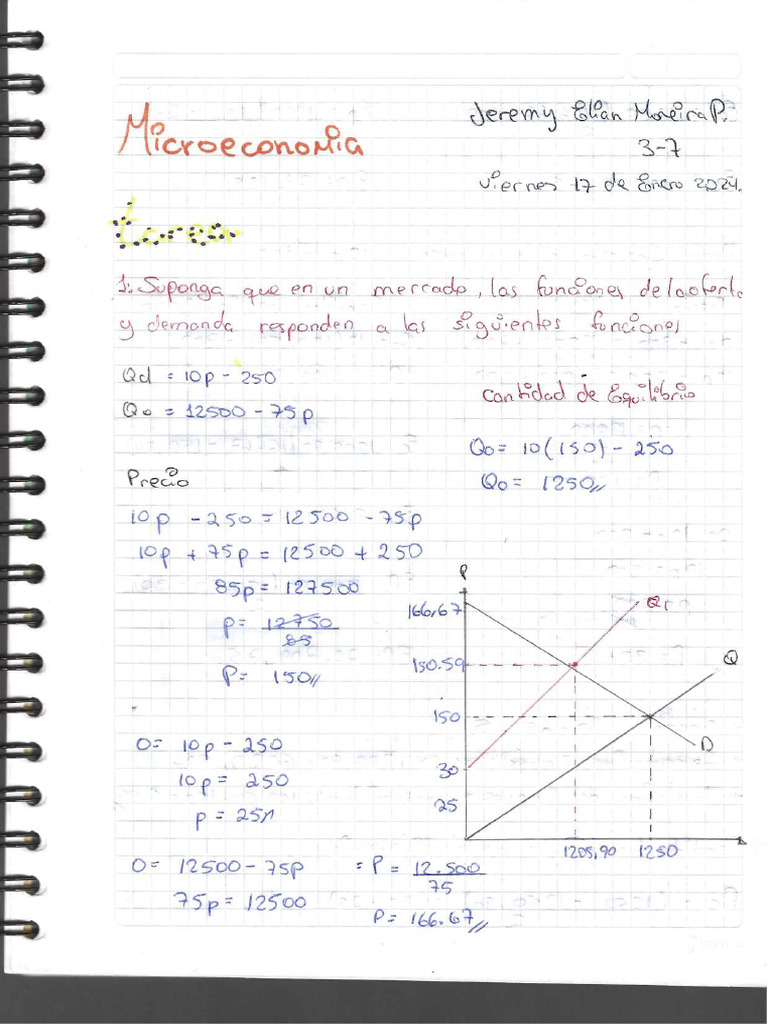 Microeconomia
Jeremy Elian Moreira P.
3-7
Viernes 17 de Enero 2024.
tarea
1. Suponga que en un mercado, las funciones de la oferta
y demanda responden a las siguientes funciones
Qd = 10p - 250
Qo = 12500 - 75p
Precio
10p - 250 = 12500 - 75p
10p + 75p = 12500 + 250
85p = 127500
p = 12750
85
P = 150//
Cantidad de Equilibrio
Qo = 10(150) - 250
Qo = 1250//
P
166,67
150.59
150
30
25
Q1
Q
D
1205,90 1250
0 = 10p - 250
10p = 250
p = 25//
0 = 12500 - 75p
75p = 12500
= P = 12.500
75
P = 166.67//